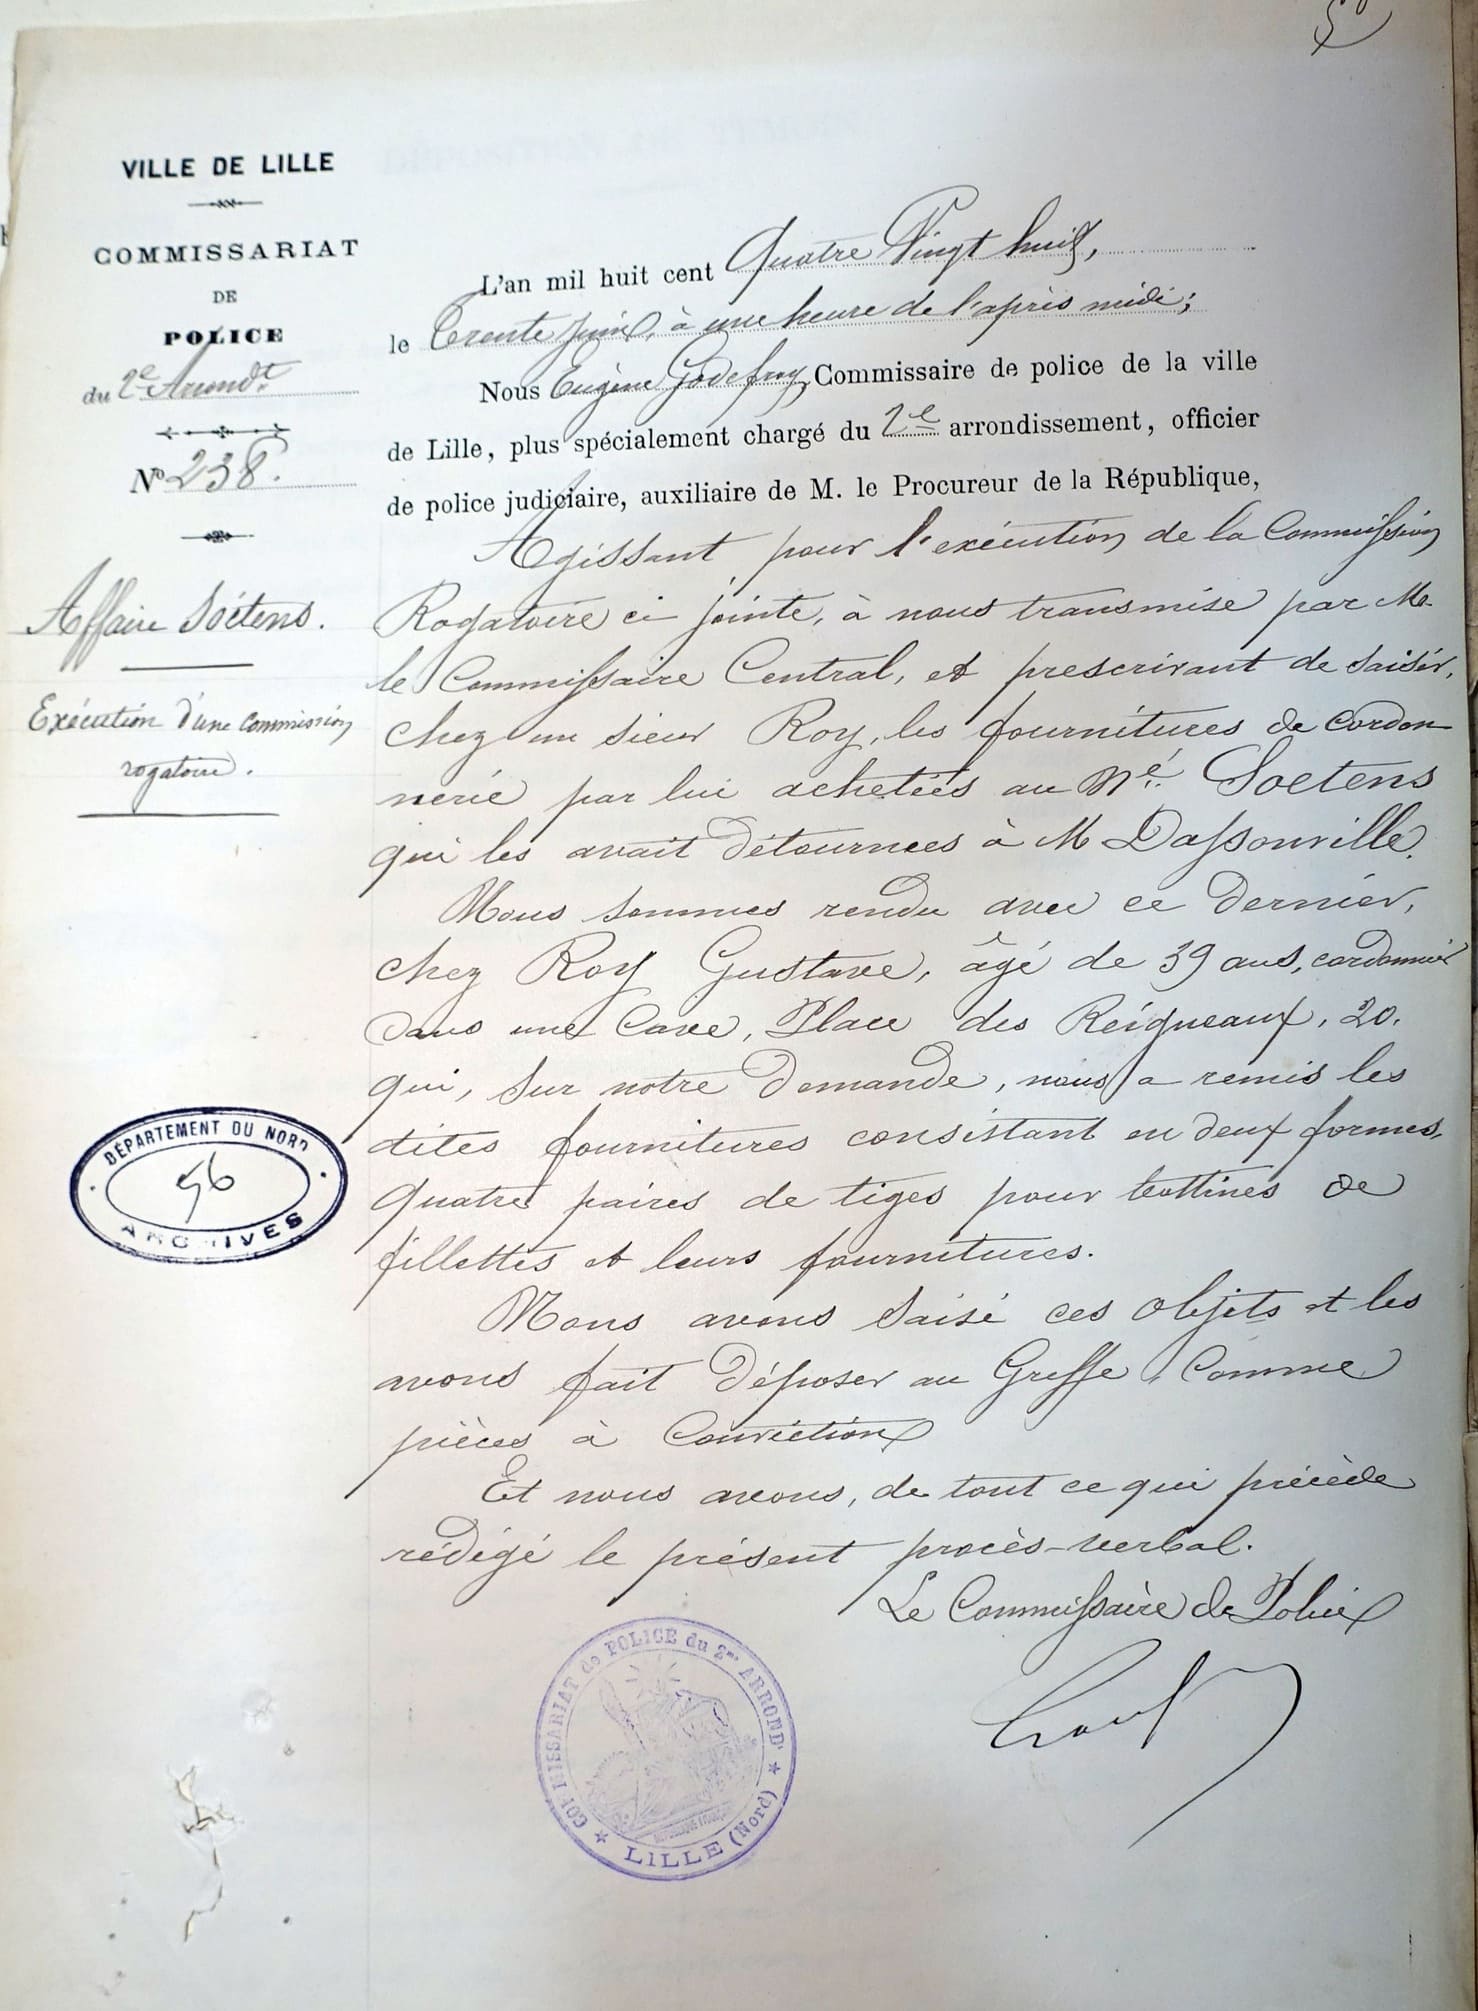 VILLE DE LILLE
COMMISSARIAT
DE
POLICE
du 2e Arrondt
No 238.
Affaire Soëtens.
Exécution d'une Commission
rogatoire.
L'an mil huit cent Quatre Vingt huit,
le Trente Juin, à une heure de l'après midi;
Nous Eugène Godefroy, Commissaire de police de la ville
de Lille, plus spécialement chargé du 2e arrondissement, officier
de police judiciaire, auxiliaire de M. le Procureur de la République,
Agissant pour l'exécution de la Commission
Rogatoire ci jointe, à nous transmise par M.
le Commissaire Central, et prescrivant de saisir,
chez un sieur Roy, les fournitures de cordon
nerie par lui achetées au Né Soetens
qui les avait détournées à M Dassonville.
Nous sommes rendu avec ce dernier,
chez Roy Gustave, âgé de 39 ans, cordonnier
dans une Cave, Place des Reigneaux, 20.
qui, sur notre demande, nous a remis les
dites fournitures consistant en deux formes,
quatre paires de tiges pour bottines de
fillettes et leurs fournitures.
Nous avons saisi ces objets et les
avons fait déposer au Greffe, Comme
pièces à Conviction
Et nous avons, de tout ce qui précède
rédigé le présent procès-verbal.
Le Commissaire de Police
DÉPARTEMENT DU NORD
56
ARCHIVES
COMMISSARIAT de POLICE du 2me ARRONDt
LILLE (Nord)